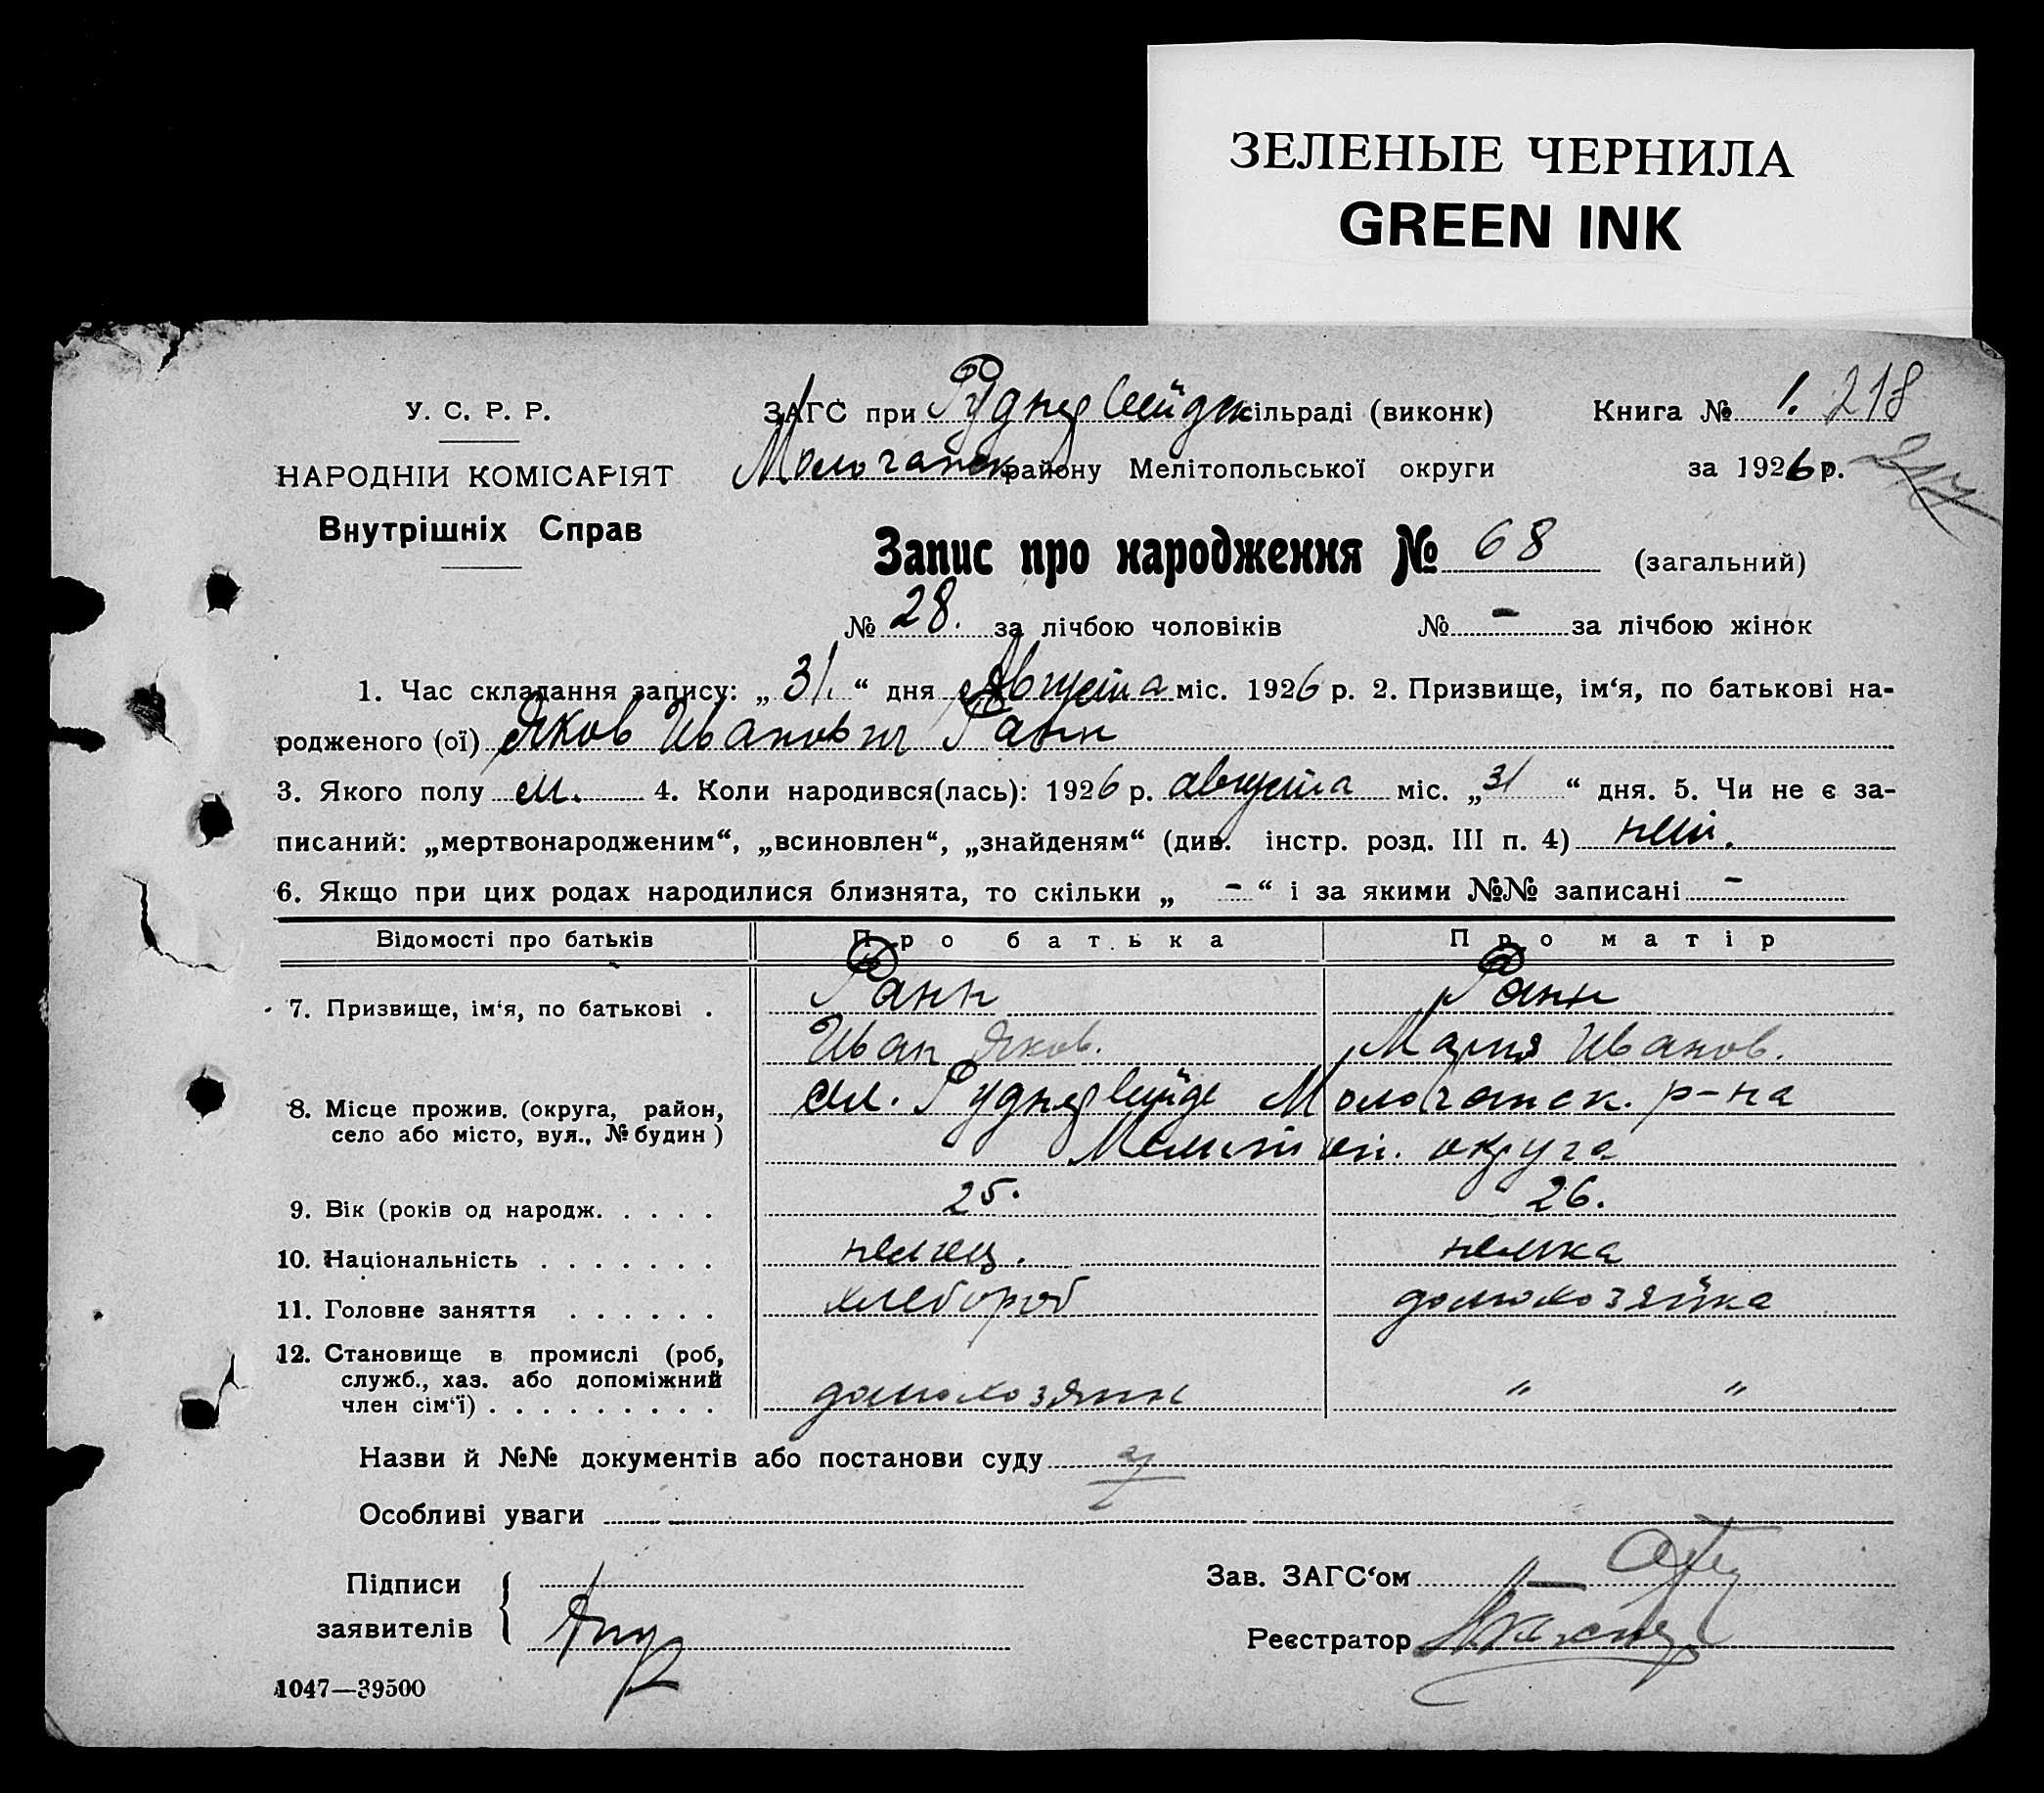 ЗЕЛЕНЫЕ ЧЕРНИЛА
GREEN INK
У. С. Р. Р.
НАРОДНІЙ КОМІСАРІЯТ
Внутрішніх Справ
ЗАГС при Руднервейдск сільраді (виконк)
Молочанск району Мелітопольської округи
Книга № 1. 218
за 1926 р.
Запис про народження № 68 (загальний)
№ 28. за лічбою чоловіків № - за лічбою жінок
1. Час складання запису: „ 31. “ дня Августа міс. 1926 р. 2. Призвище, ім‘я, по батькові на-
родженого (ої) Яков Иванович Ранн
3. Якого полу м. 4. Коли народився(лась): 1926 р. августа міс. „ 31 “ дня. 5. Чи не є за-
писаний: „мертвонародженим“, „всиновлен“, „знайденям“ (див. інстр. розд. III п. 4) нет.
6. Якщо при цих родах народилися близнята, то скільки „ - “ і за якими №№ записані -
Відомості про батьків Про батька Про матір
7. Призвище, ім‘я, по батькові . Ранн Ранн
Иван Яков. Мария Иванов.
8. Місце прожив. (округа, район, село або місто, вул., № будин) ал. Руднервейде Молочанск. р-на
Мелитоп. округа
9. Вік (років од народж. . . . . 25. 26.
10. Національність . . . . . . . немец. немка
11. Головне заняття . . . . . . хлебороб домохозяйка
12. Становище в промислі (роб,
служб., хаз. або допоміжний
член сім‘ї) . . . . . . . . . домохозяин " "
Назви й №№ документів або постанови суду
Особливі уваги
Підписи
заявителів
Зав. ЗАГС‘ом
Реєстратор
1047—39500